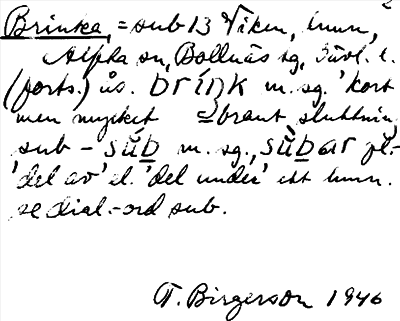 2
Brinka = sub 13 Viken, hmn,
Alfta sn, Bollnäs sg, Gävl. l.
(forts.) ås. bríŋk m. sg. 'kort
men mycket brant sluttnin
sub - sub m. sg., subar pl.
'del av' el. 'del under' ett hmn.
se dial.-ord sub.
T. Birgerson 1946